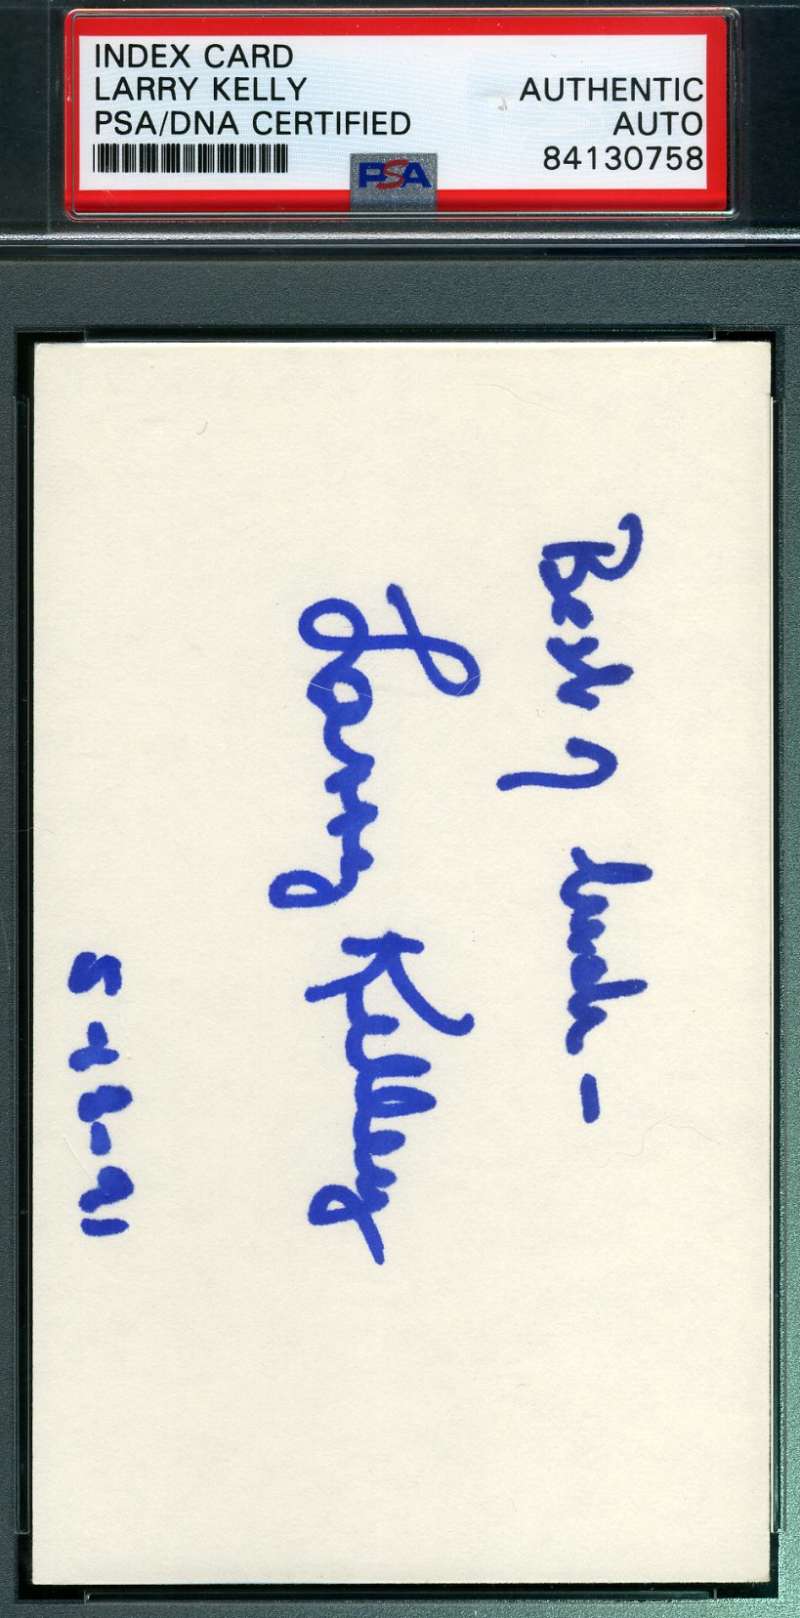 INDEX CARD
LARRY KELLY
PSA/DNA CERTIFIED
AUTHENTIC
AUTO
84130758
PSA
Best of luck –
Larry Kelley
5-28-91